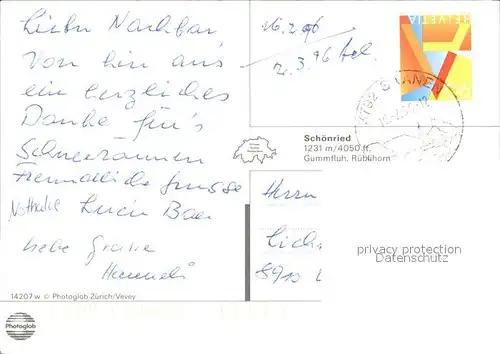 Lieber Nachbar
Von hier aus
ein herzliches
Danke für's
Schneeräumen
Freundliche Grüsse
Nathalie Lucia
liebe Grüsse
Hanneli
16.2.96
2.3.96 tel.
HELVETIA
SAANEN
Schönried
1231 m/4050 ft.
Gummfluh, Rüblihorn
Herrn
privacy protection
Datenschutz
14207 w © Photoglob Zürich/Vevey
Photoglob